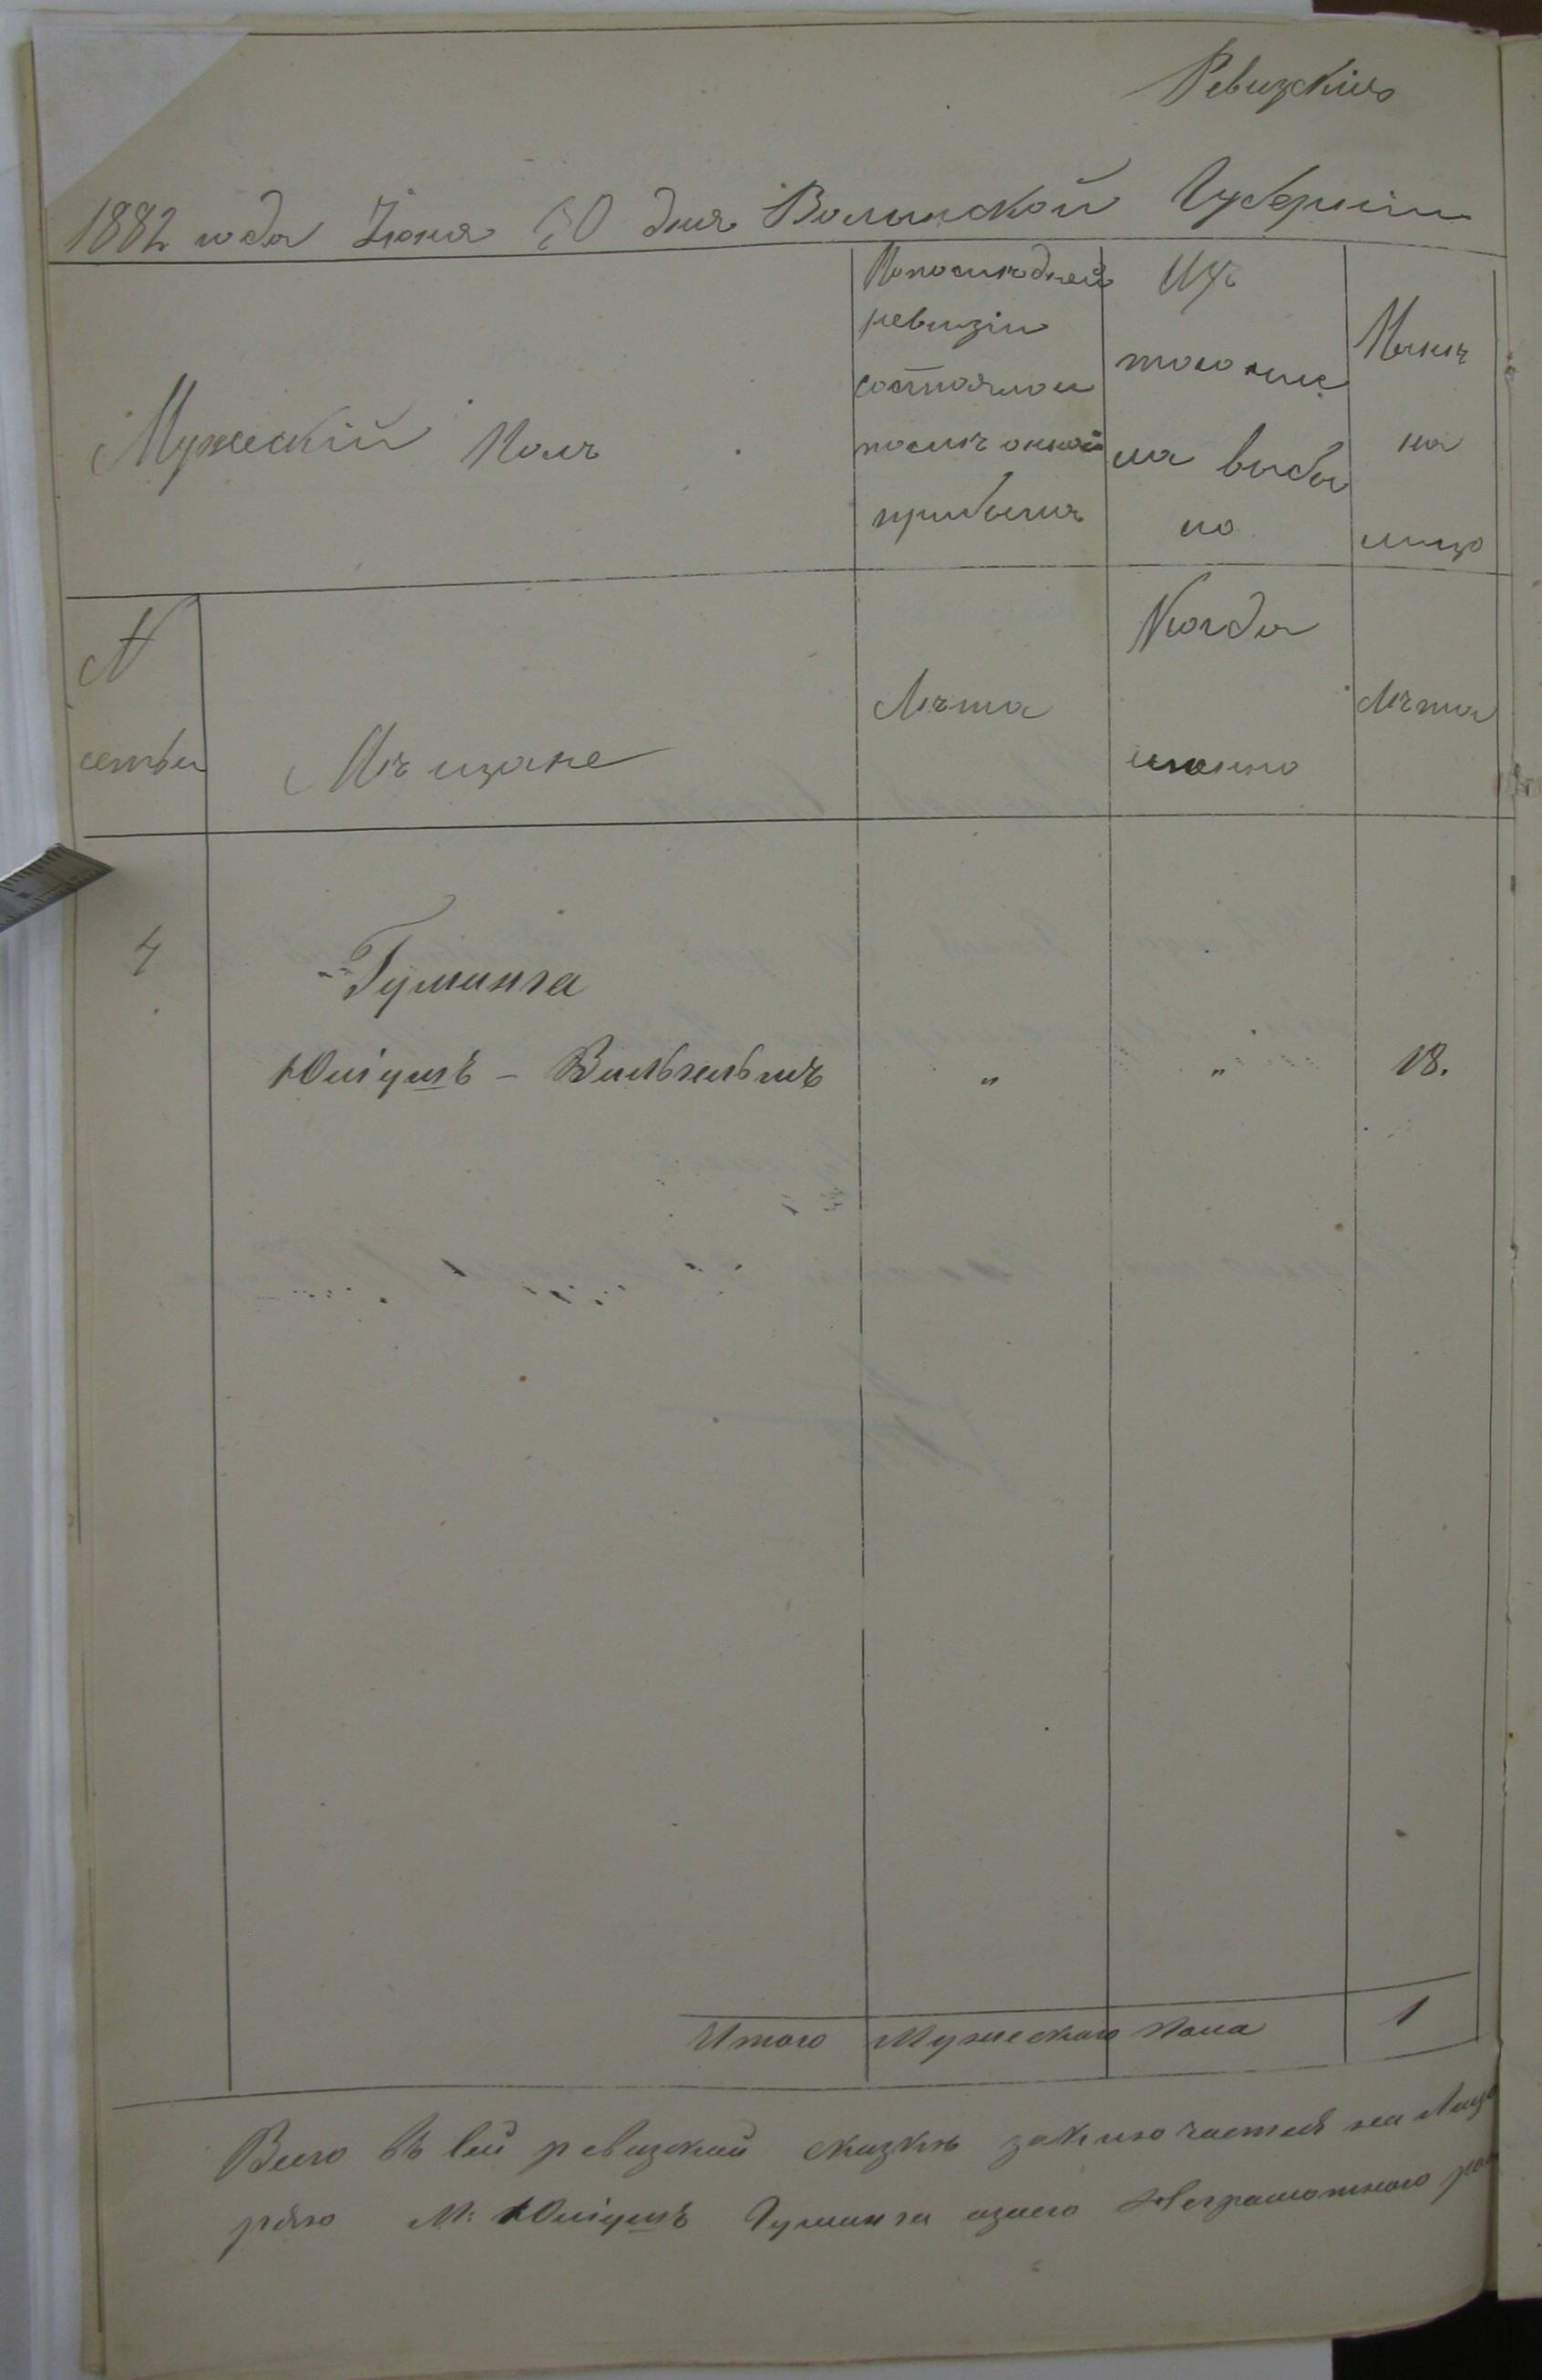 Ревизкию
1882 года Іюня 20 дня Волынской Губерніи
Мужескій Полъ
По последней
ревизіи
состояло и
после оной
прибыло
Изъ
того чис
ла выбы
ло
Ныне
на
лицо
N
семьи
Мѣщане
Лѣта
Когда
именно
Лѣта
4
Гуминга
Юліусъ - Вильгельмъ
"
"
18.
Итого Мужескаго пола 1
Всего въ сей ревизкой сказкѣ заключается на Лицо
М: Юліусъ Гуминга а за него Неграмотнаго